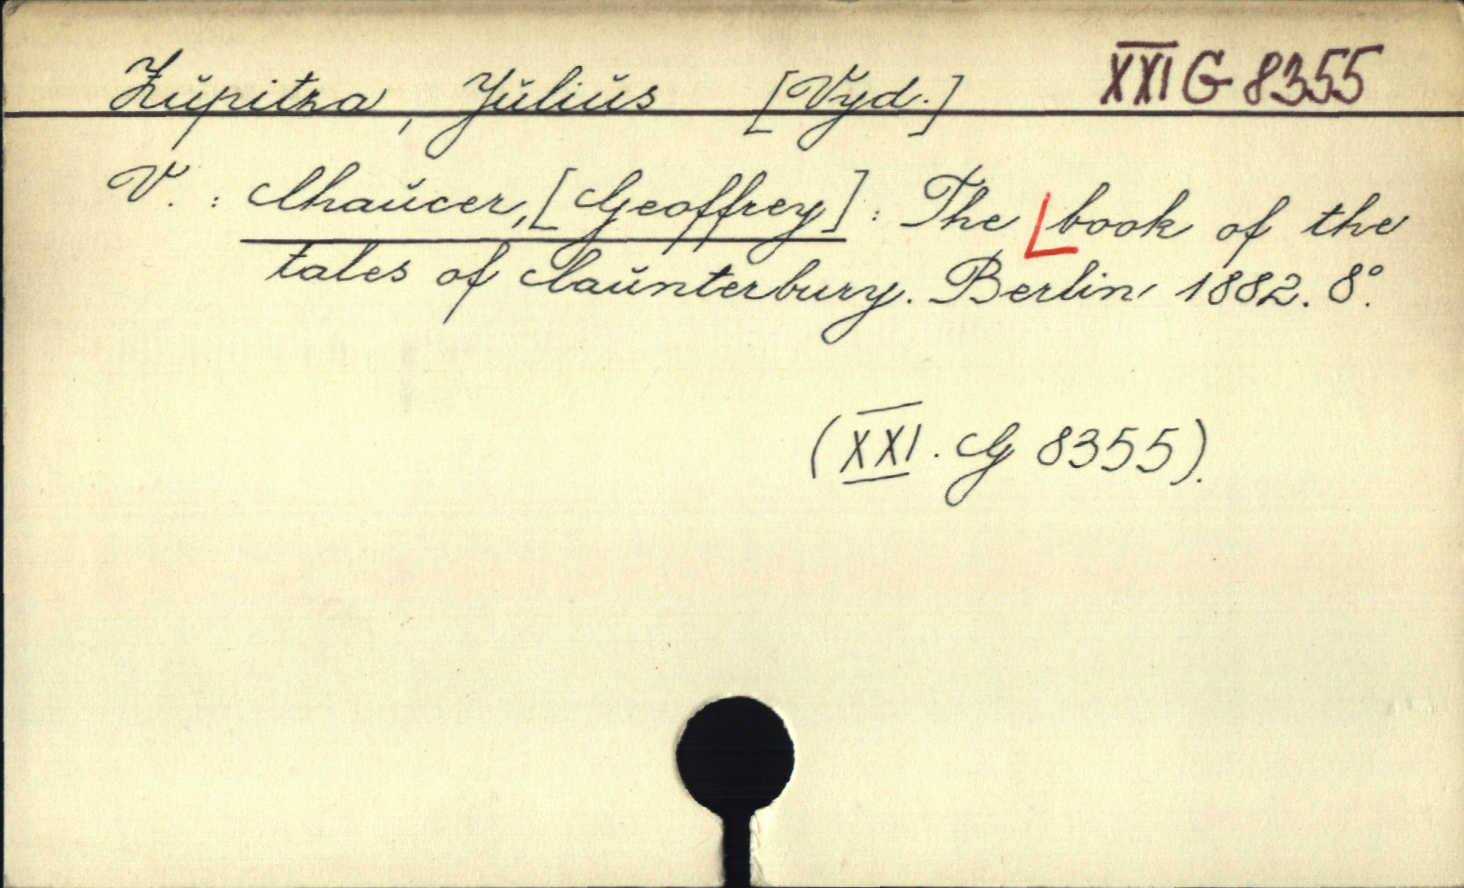 Zupitza, Julius [Vyd.] XXI G 8355
V. : Chaucer, [Geoffrey] : The book of the
tales of Caunterbury. Berlin, 1882. 8°.
(XXI. G 8355).